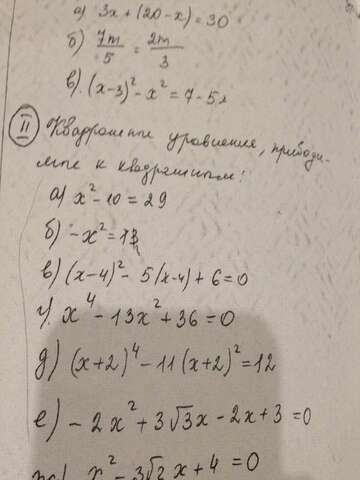 а) 3x + (20 - x) = 30
б) 7m/5 = 2m/3
в). (x-3)² - x² = 7 - 5x
II Квадратные уравнения, приводи-
мые к квадратным:
а) x² - 10 = 29
б) -x² = 13
в) (x-4)² - 5(x-4) + 6 = 0
г). x⁴ - 13x² + 36 = 0
д) (x+2)⁴ - 11(x+2)² = 12
е) -2x² + 3√3x - 2x + 3 = 0
x² - 3√2x + 4 = 0